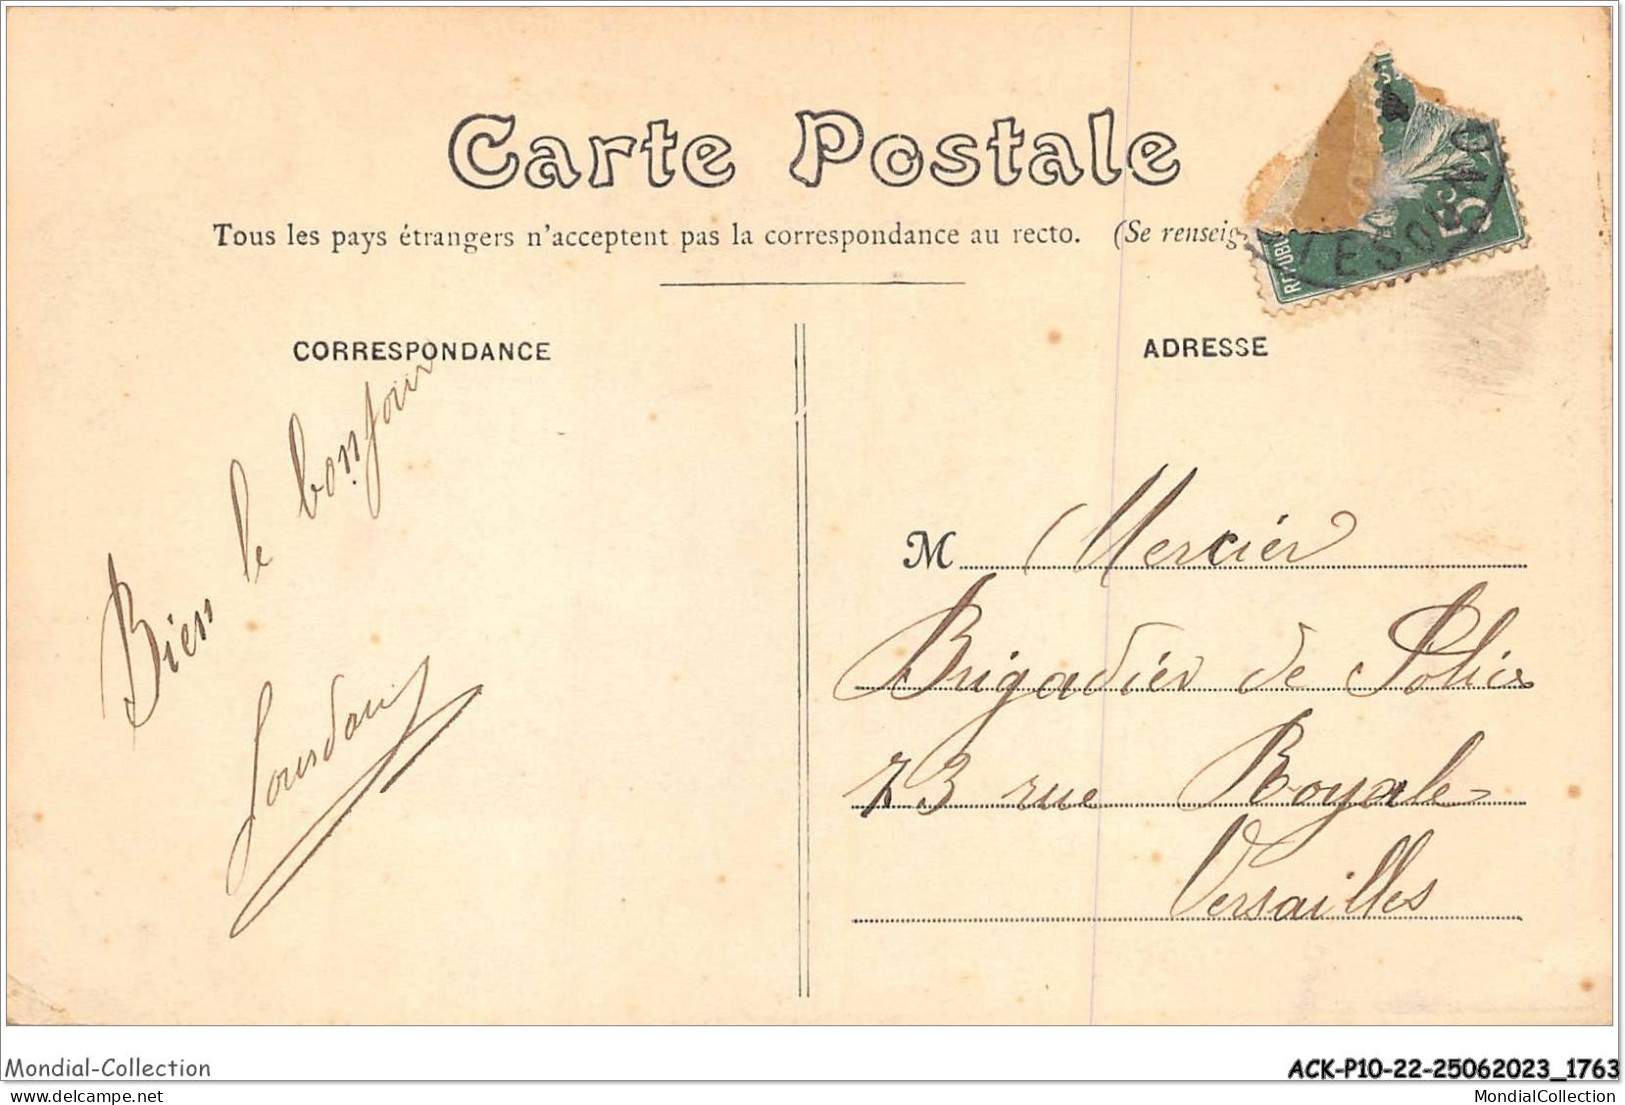 Carte Postale
Tous les pays étrangers n'acceptent pas la correspondance au recto. (Se renseig
REPUBL
5c
VESOUL
CORRESPONDANCE
ADRESSE
Bien le bonjour
Jourdain
M Mercier
Brigadier de Police
73 rue Royale
Versailles
Mondial-Collection
ACK-P10-22-25062023_1763
Mondial-Collection
MondialCollection